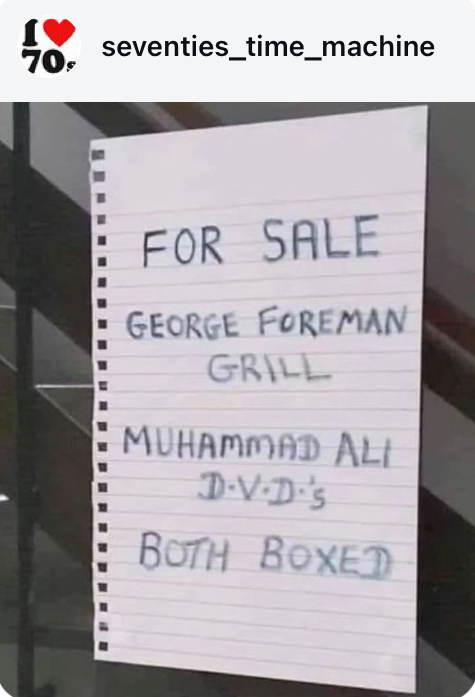 I ❤ 70s
seventies_time_machine
FOR SALE
GEORGE FOREMAN
GRILL
MUHAMMAD ALI
D.V.D.'s
BOTH BOXED